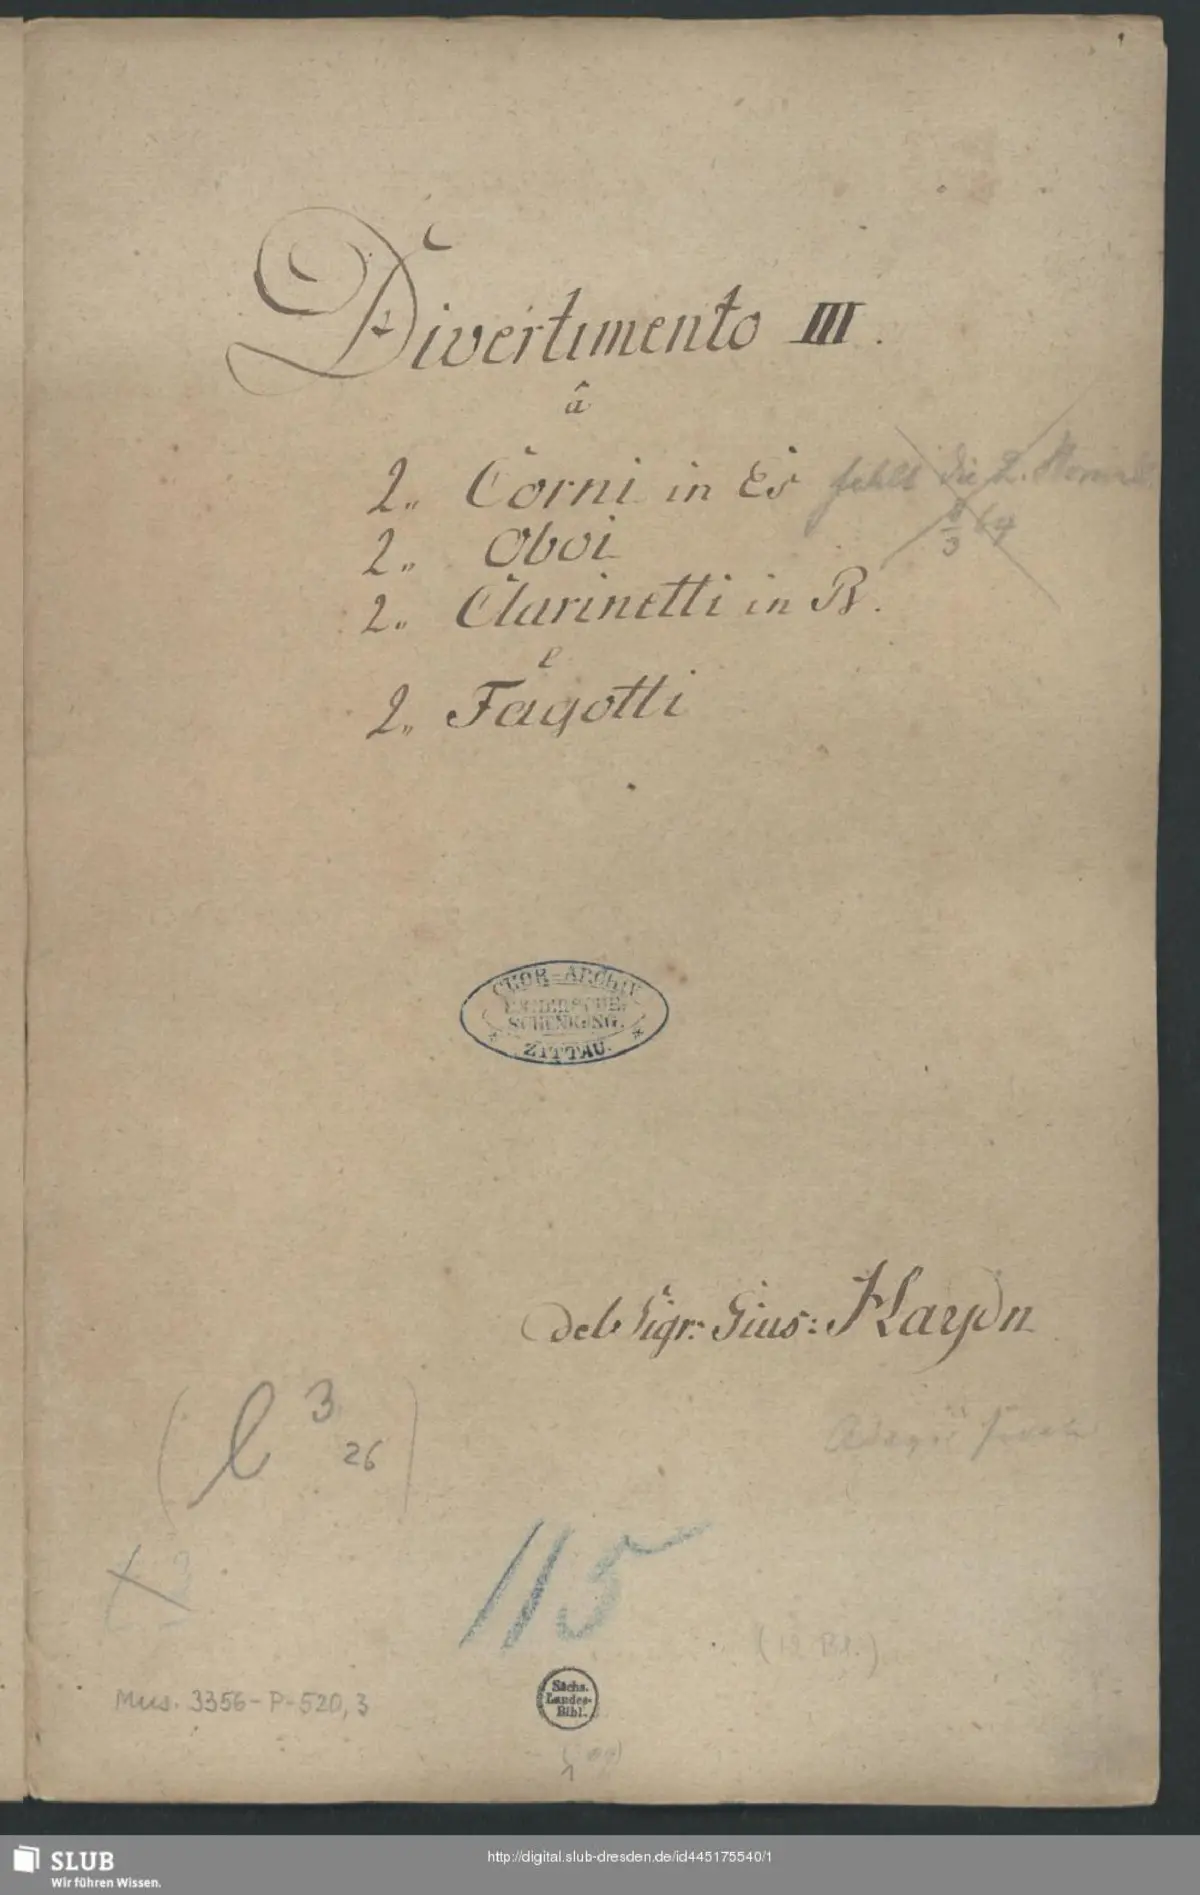 1
Divertimento III.
â
2,, Corni in Es fehlt die 2.
2,, Oboi
2,, Clarinetti in B.
e
2,, Fagotti
CHOR-ARCHIV
SCHENKUNG.
ZITTAU.
del Sigr: Gius: Haydn
(l 3
26)
115
(12 Bl.)
Mus. 3356-P-520,3
Sächs.
Landes-
Bibl.
SLUB
Wir führen Wissen.
http://digital.slub-dresden.de/id445175540/1